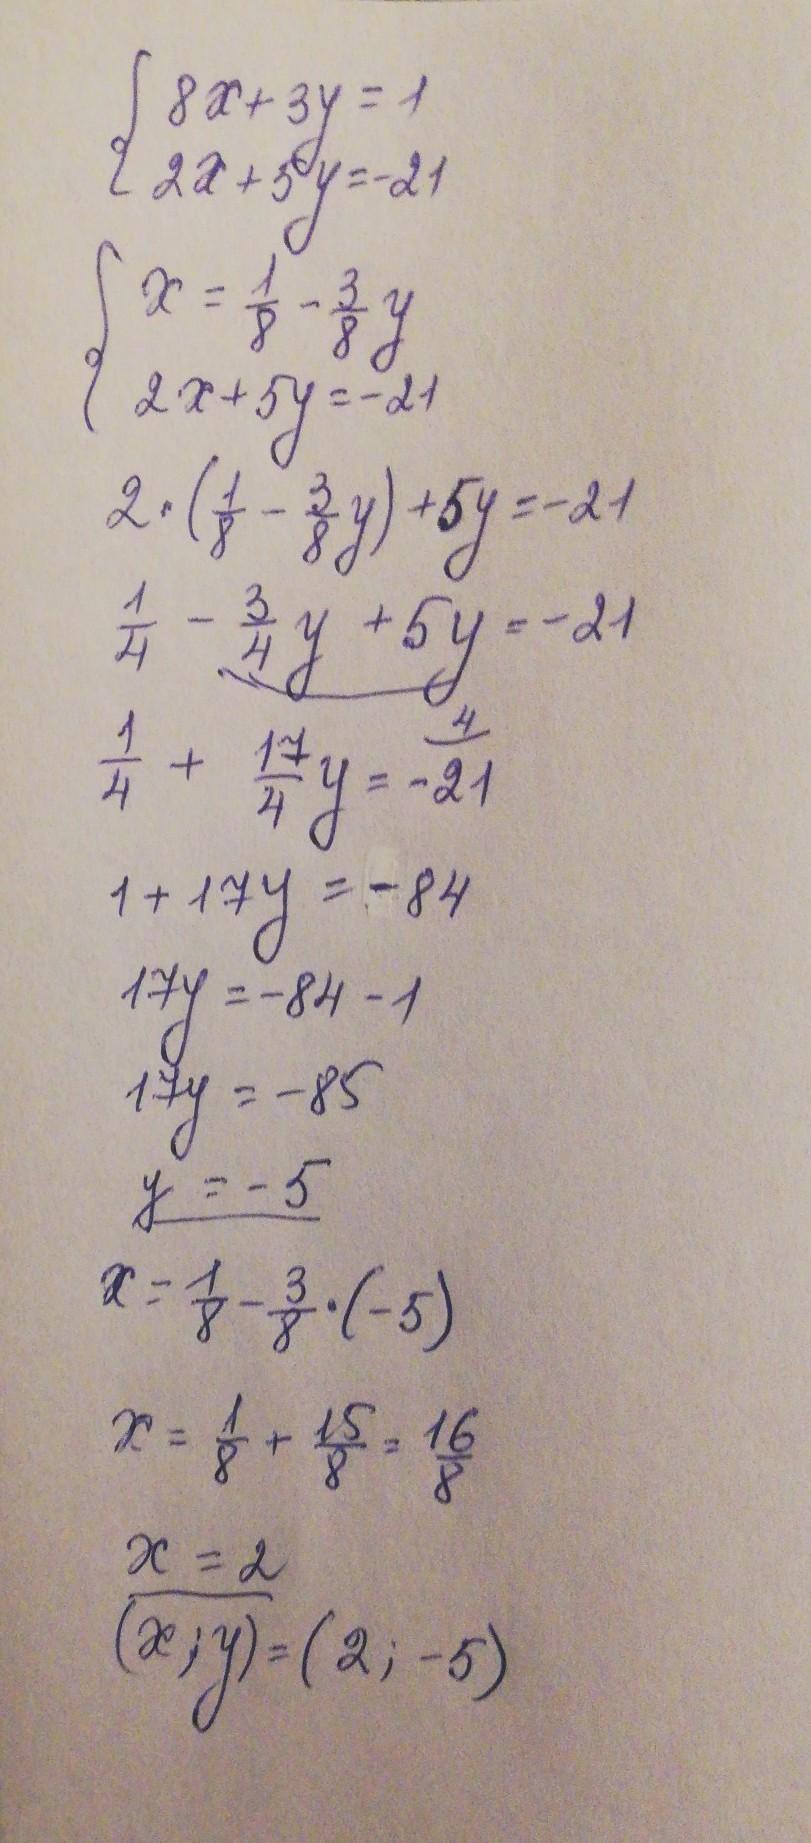 { 8x + 3y = 1
2x + 5y = -21
{ x = 1/8 - 3/8 y
2x + 5y = -21
2 · (1/8 - 3/8 y) + 5y = -21
1/4 - 3/4 y + 5y = -21
4
1/4 + 17/4 y = -21
1 + 17y = -84
17y = -84 - 1
17y = -85
y = -5
x = 1/8 - 3/8 · (-5)
x = 1/8 + 15/8 = 16/8
x = 2
(x; y) = (2; -5)